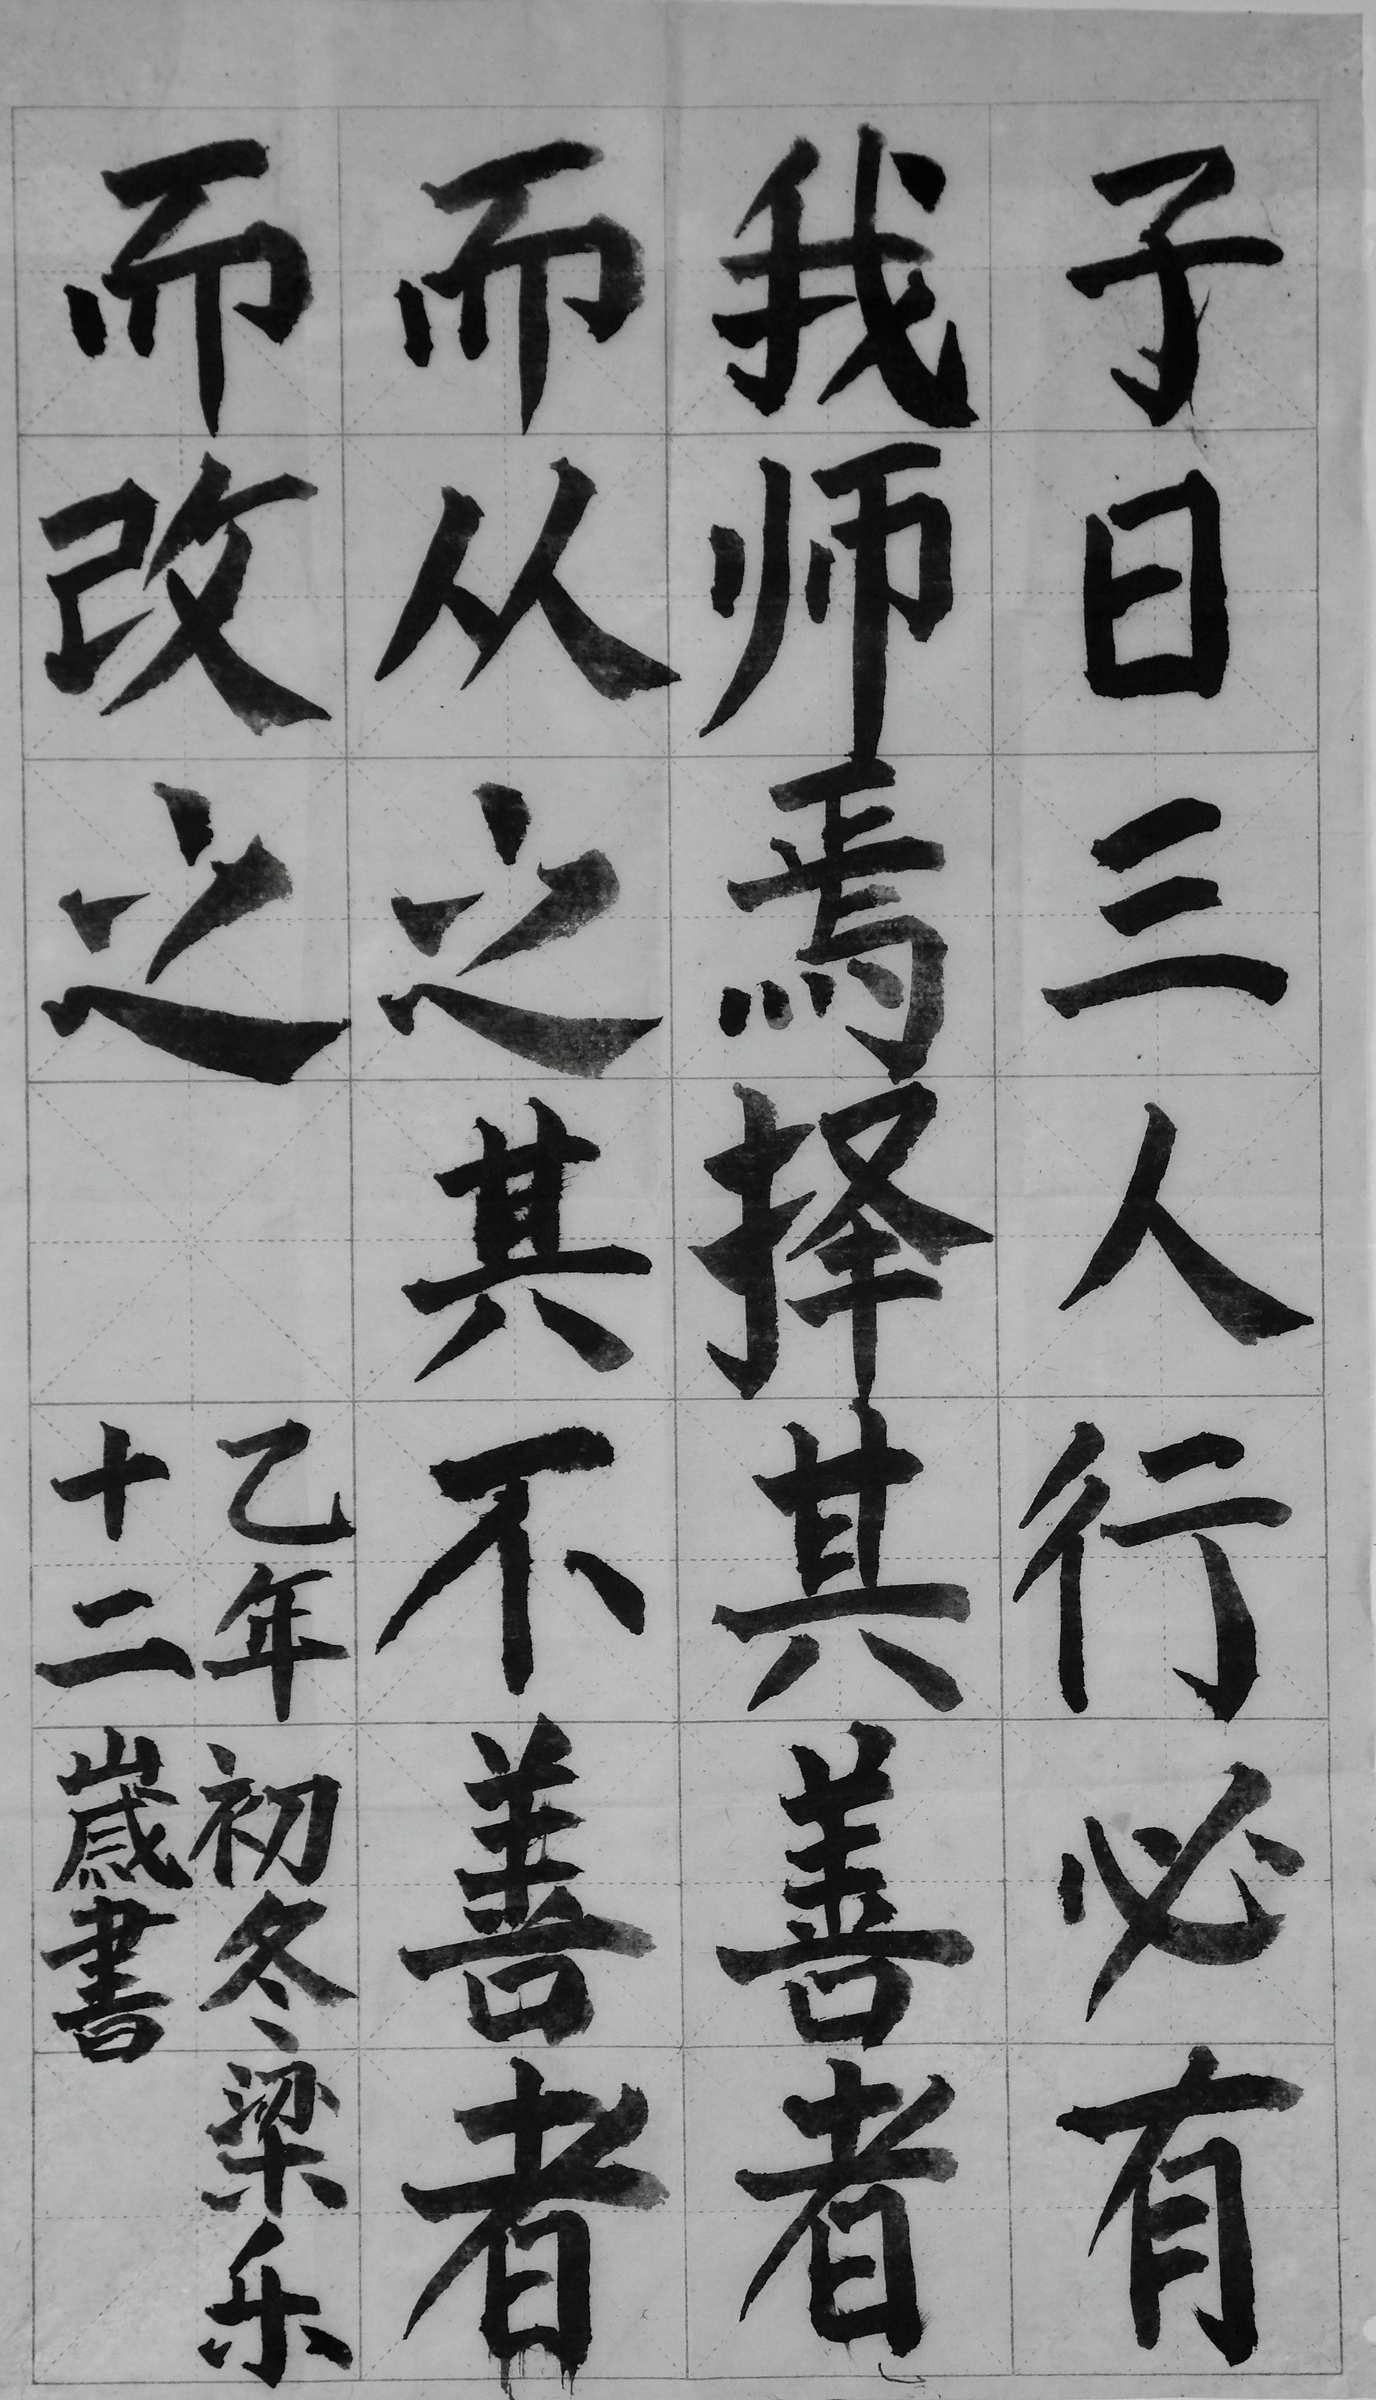 子曰三人行必有
我师焉择其善者
而从之其不善者
而改之
乙年初冬梁乐
十二歲書